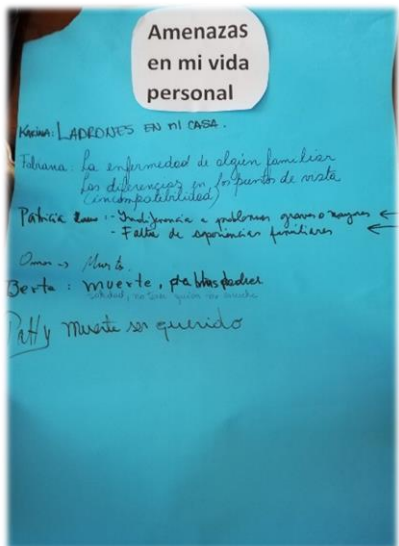 Amenazas
en mi vida
personal
Karina: LADRONES EN MI CASA.
Fabiana: La enfermedad de algún familiar
Las diferencias en los puntos de vista
(incompatibilidad)
Patricia : - Indiferencia a problemas graves o mayores ←
- Falta de experiencias familiares ←
Omar →
Berta : muerte,
soledad, no
Patty muerte ser querido